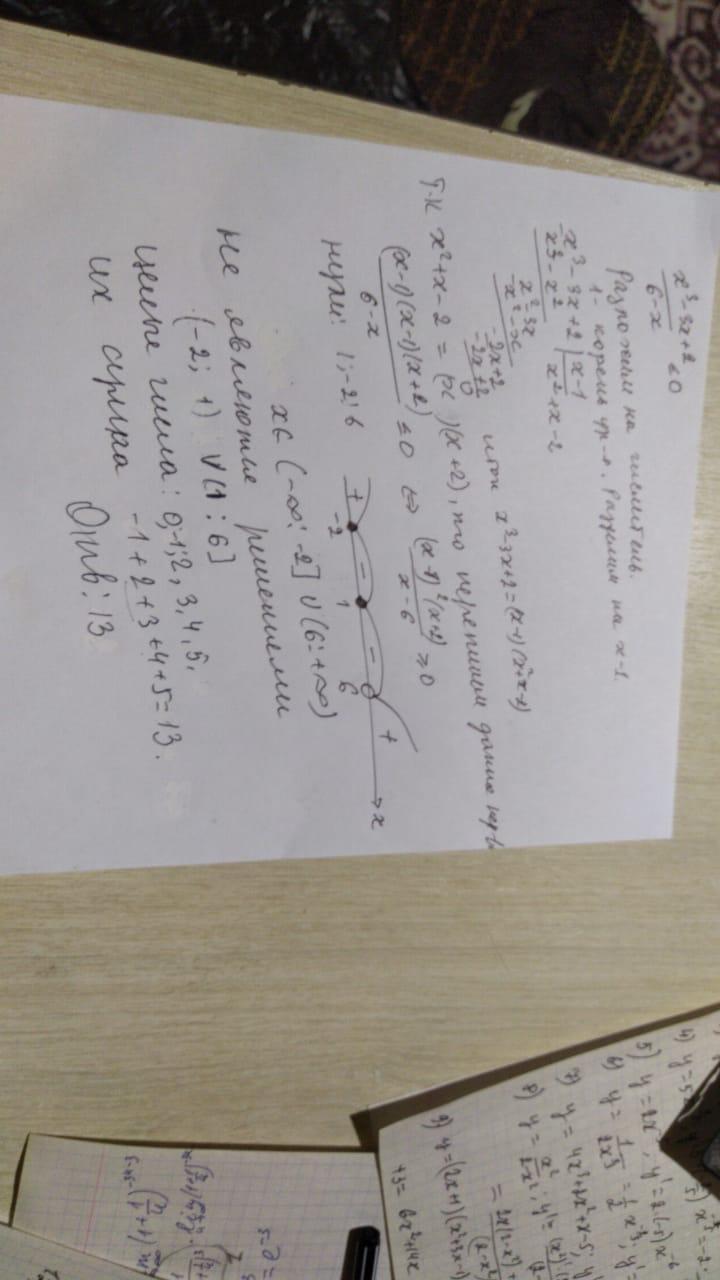 x³-3x+2 / 6-x ≤0
Разложим на числитель.
1- корень ур-я. Разделим на x-1.
x³-3x+2 | x-1
x³-x² x²+x-2
x²-3x
x²-x
-2x+2
-2x+2
0
итак x³-3x+2=(x-1)(x²+x-2)
Т.к x²+x-2 = (x )(x+2), то перепишем данное нер-
(x-1)(x-1)(x+2) / 6-x ≤0 ⇔ (x-1)²(x+2) / x-6 ≥0
нули: 1;-2;6
+ - - +
-2 1 6 x
x∈(-∞;-2]∨(6;+∞)
не являются решениями
(-2; 1) ∨(1; 6]
целые числа: 0,-1;2,3,4,5,
их сумма -1+2+3+4+5=13.
Отв: 13
5) y=2x
6) y = 1/2x³ = 1/2 x⁻³; y'
7) y = 4x³+2x²+x-5; y
8) y = x²/2-x²; y'=
9) y=(2x+1)(x²+3x-1)
+3= 6x²+14x